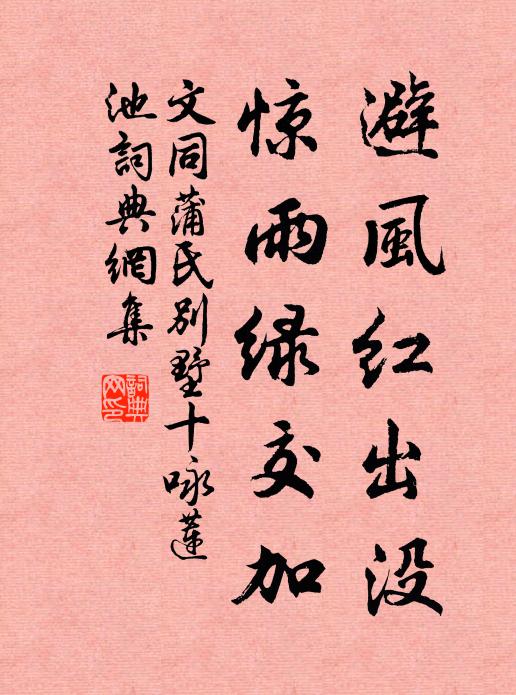 避風红出没
惊雨緑交加
文同蒲氏别墅十咏蓮
池詞典網集
詞典
网印